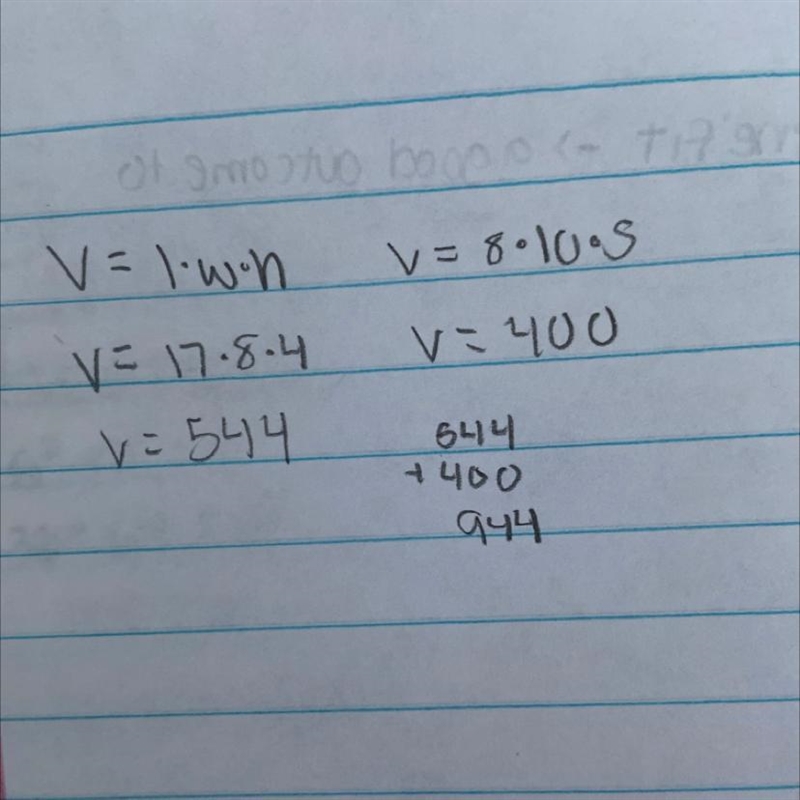 V = l·w·h
V = 17·8·4
V = 544
V = 8·10·5
V = 400
544
+400
944